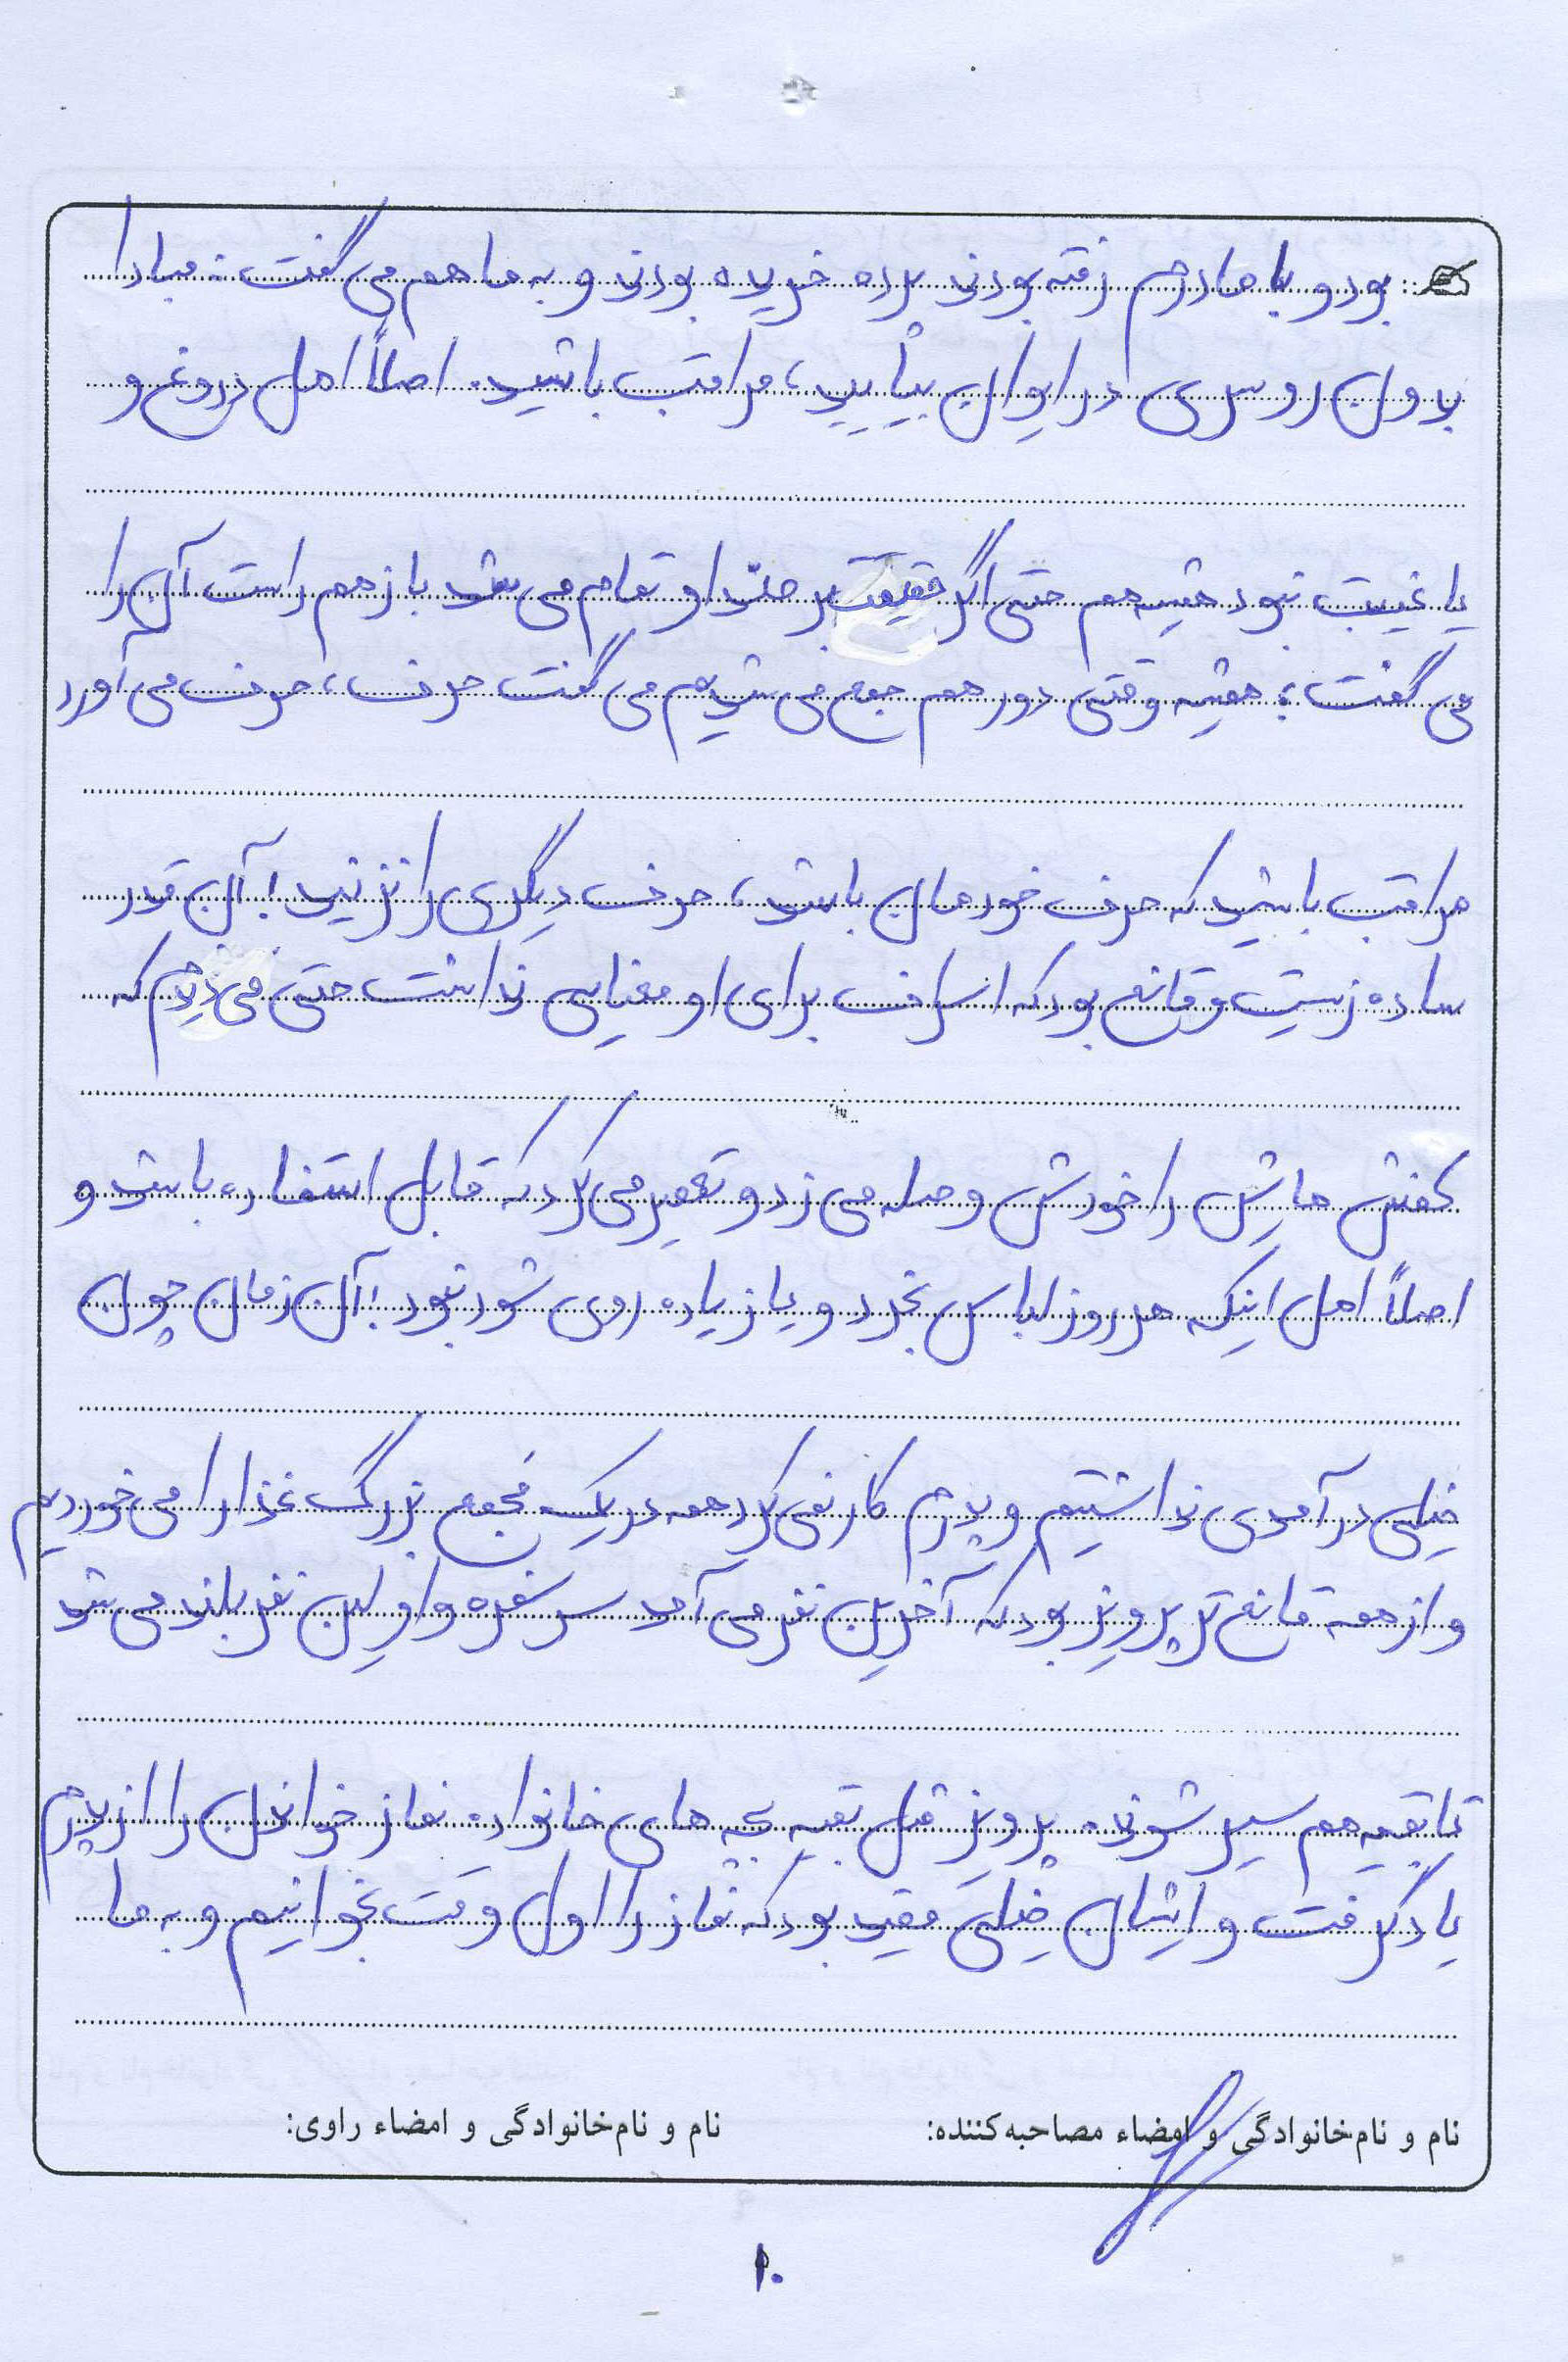 بود و با مادرم رفته بودند پرده خریده بودند و به ما هم می گفت: مبادا
بدون روسری در ایوان بیایید، مراقب باشید. اصلاً اهل دروغ و
یا غیبت نبود همیشه هم حتی اگر حقیقت بر ضد او تمام می شد باز هم راست آن را
می گفت؛ همیشه وقتی دور هم جمع می شدیم می گفت حرف، حرف می آورد
مراقب باشید که حرف خودمان باشد، حرف دیگری را نزنید! آن قدر
ساده زیست و قانع بود که اسراف برای او معنایی نداشت حتی می دیدم که
کفش هایش را خودش وصله می زد و تعمیر می کرد که قابل استفاده باشد و
اصلاً اهل اینکه هر روز لباس بخرد و یا زیاده روی شود نبود! آن زمان چون
خیلی درآمدی نداشتیم و پدرم کار نمی کرد همه در یک مجمع بزرگ غذا را می خوردیم
و از همه قانع تر پرویز بود که آخرین نفر می آمد سر سفره و اولین نفر بلند می شد
تا بقیه هم سیر شوند. پرویز قبل بقیه بچه های خانواده نماز خواندن را از پدرم
یاد گرفت و ایشان خیلی مقید بود که نماز را اول وقت بخوانیم و به ما
نام و نام‌خانوادگی و امضاء مصاحبه‌کننده: نام و نام‌خانوادگی و امضاء راوی:
۱۰